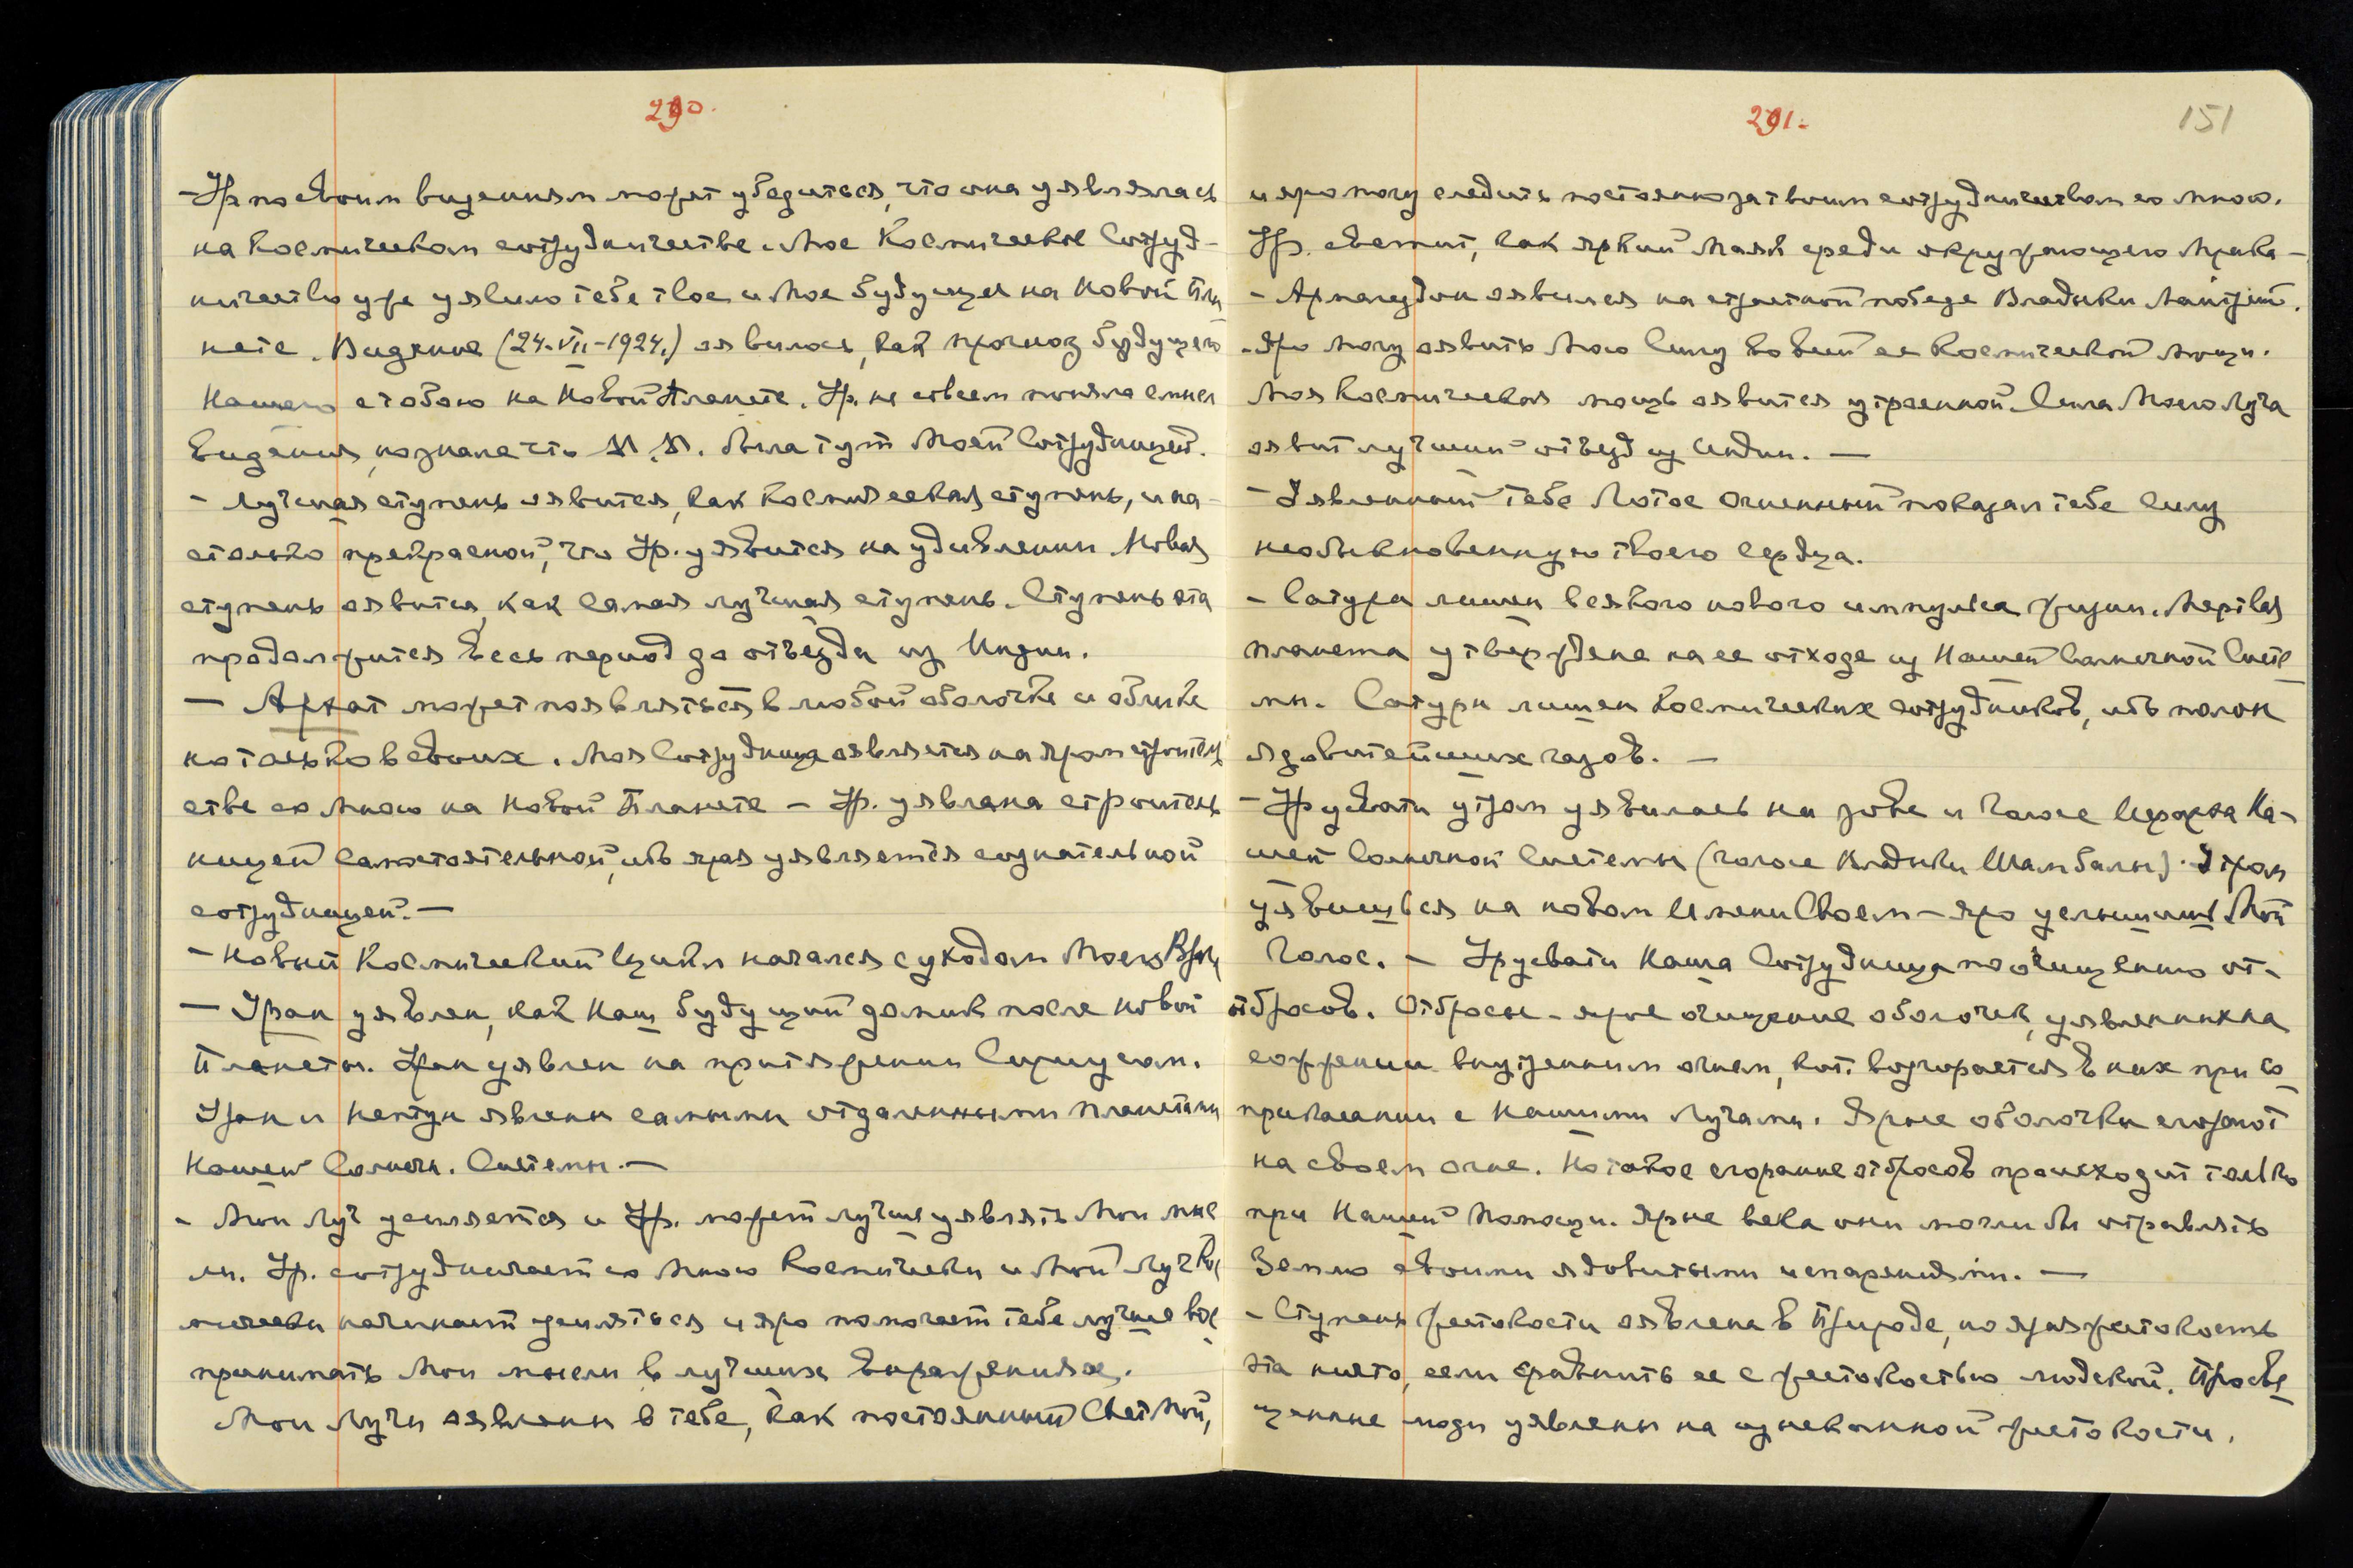 290.
- Ур. по своим видениям может убедиться, что она уявлялась
на Космическом сотрудничестве. Мое Космическое Сотруд-
ничество уже уявило тебе твое и Мое будущее на Новой Пла
нете. Видение (24-VII-1924.) оявилось, как прогноз будущего
Нашего с тобою на Новой Планете. Ур. не совсем поняла смысл
видения, не зная что была тут Моей Сотрудницей.
- Лучшая ступень оявится, как Космическая ступень, и на-
столько прекрасной, что Ур. уявится на удивлении. Новая
ступень оявится, как самая лучшая ступень. Ступень эта
продолжится весь период до отъезда из Индии.
— Архат может появляться в любой оболочке и облике
но только в своих. Моя Сотрудница оявляется на яром строитель
стве со Мною на Новой Планете - Ур. уявлена строитель
ницей самостоятельной, ибо ярая уявляется сознательной
сотрудницей. —
- Новый Космический Цикл начался с уходом Моего
— Уран уявлен, как Наш будущий домик после Новой
Планеты. Уран уявлен на притяжении Сириусом.
Уран и Нептун явлены самыми отдаленными планетами
Нашей Солнечн. Системы. —
- Мой Луч усиляется и Ур. может лучше уявлять Мои мыс
ли. Ур. сотрудничает со Мною Космически и Мой Луч Кос
мически начинает усиляться и яро помогает тебе лучше вос
принимать Мои мысли в лучших выражениях.
Мои Лучи оявлены в тебе, как постоянный Свет Мой,
291.
151
и яро могу следить постоянно за твоим сотрудничеством со Мною.
Ур. светит, как яркий Маяк среди окружающего Мрака —
- Армагеддон оявился на страстной победе Владыки .
- Яро могу оявить Мою Силу во всей ее Космической Мощи.
Моя Космическая мощь оявится утроенной. Сила Моего Луча
оявит лучший отъезд из Индии. —
- Уявленный тебе Лотос Огненный показал тебе Силу
необыкновенную твоего Сердца.
- Сатурн лишен всякого нового импульса жизни. Мертвая
планета утверждена на ее отходе из Нашей Солнечной Систе
мы. Сатурн лишен Космических сотрудников, ибо полон
ядовитейших газов. —
- Урусвати утром уявилась на зове и Голосе Иерарха На-
шей Солнечной Системы (голосе Владыки Шамбалы). Утром
уявившись на новом Имени Своем - яро услышишь Мой
Голос. - Урусвати Наша Сотрудница по очищению от-
отбросов. Отбросы - ярое очищение оболочек, уявленных на
сожжении внутренним огнем, кот. возгорается в них при со
прикасании с Нашими Лучами. Ярые оболочки сгорают
на своем огне. Но такое сгорание отбросов происходит только
при Нашей Помощи. Ярые века они могли бы отравлять
Землю своими ядовитыми испарениями. —
- Ступень жестокости оявлена в Природе, но ярая жестокость
эта ничто, если сравнить ее с жестокостью людской. Просве
щенные люди уявлены на изысканной жестокости.